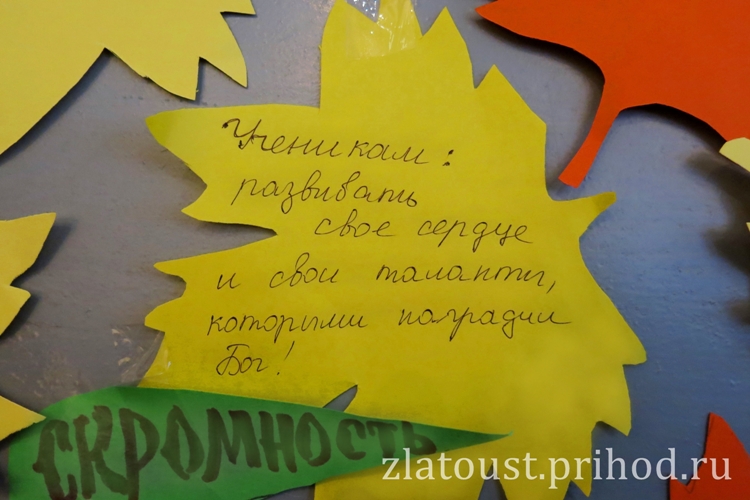 Ученикам:
развивать
свое сердце
и свои таланты,
которыми наградил
Бог!
СКРОМНОСТЬ
zlatoust.prihod.ru